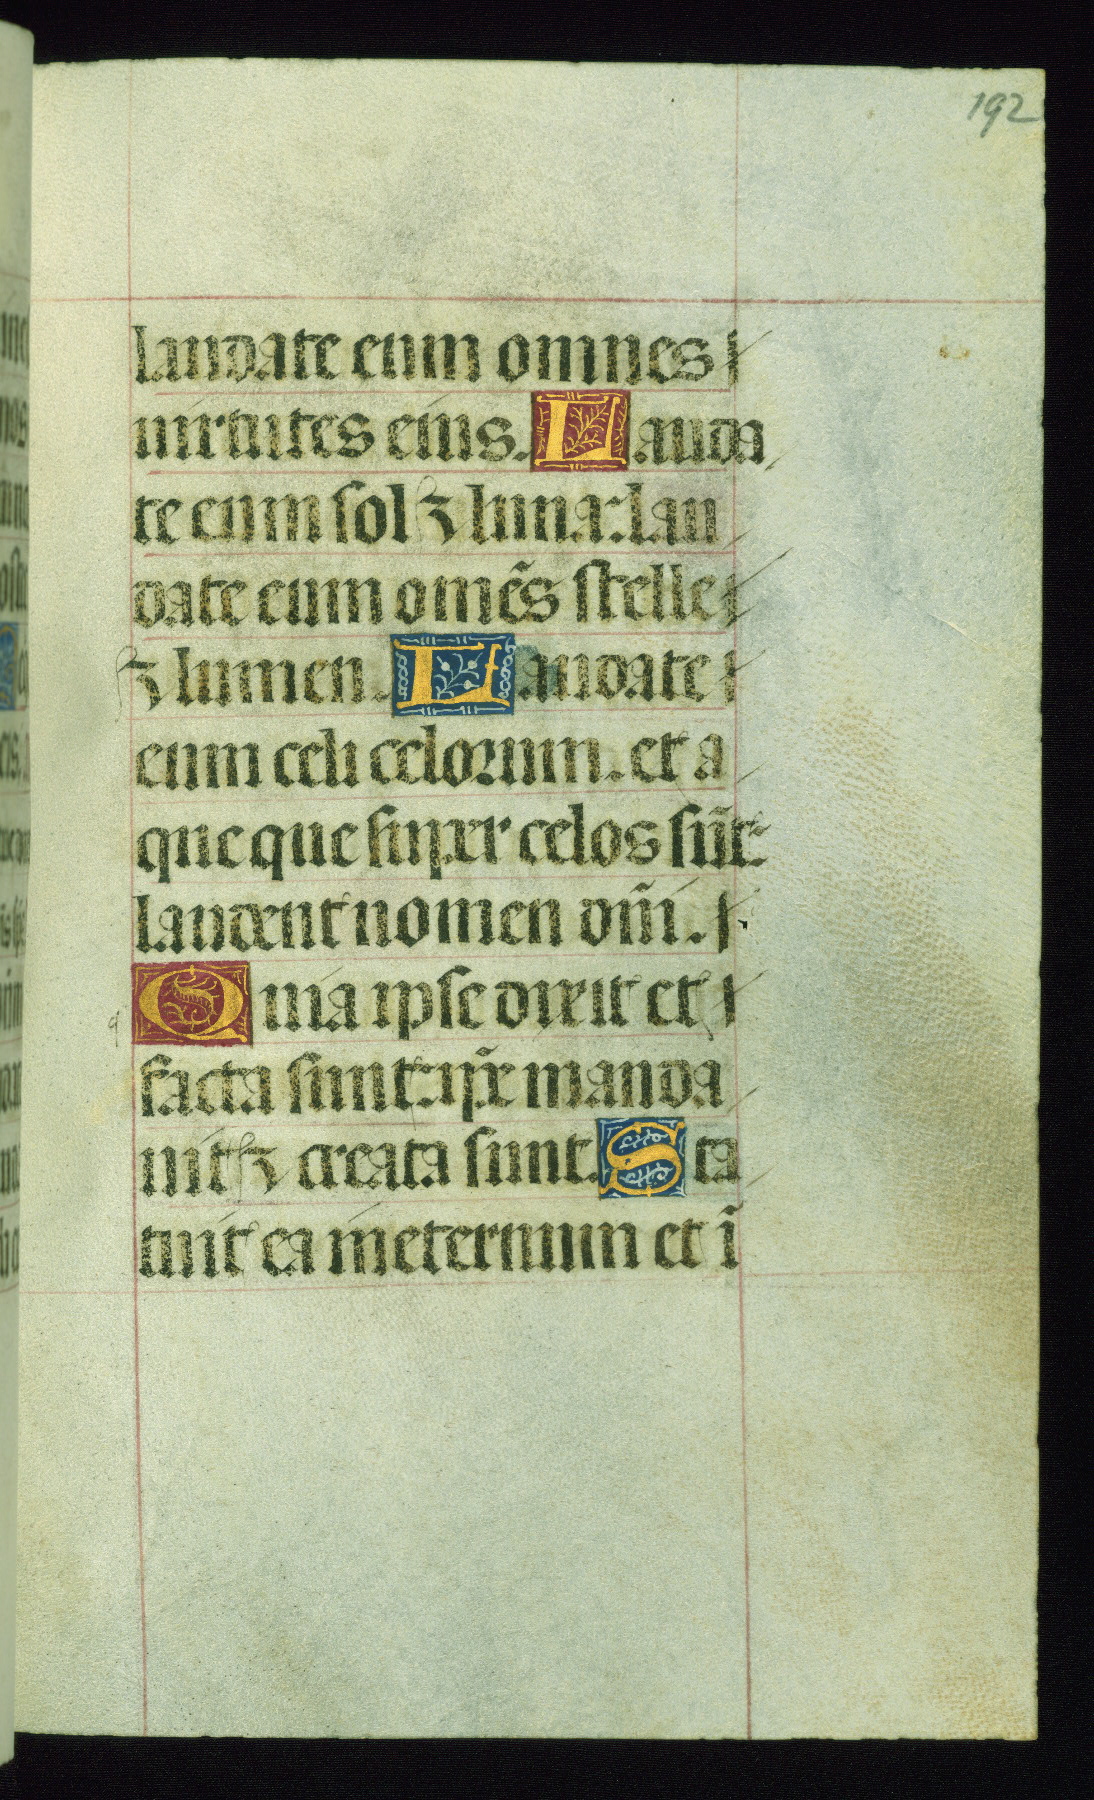 192
laudate eum omnes
uirtutes eius. Lauda
te eum sol ⁊ luna: lau
date eum om̄es stelle
⁊ lumen. Laudate
eum celi celorum. et a
que que super celos sūt
laudent nomen dn̄i.
Quia ipse dixit et
facta sunt: ip̄e manda
uit ⁊ creata sunt. Sta
tuit ea in eternum et ī